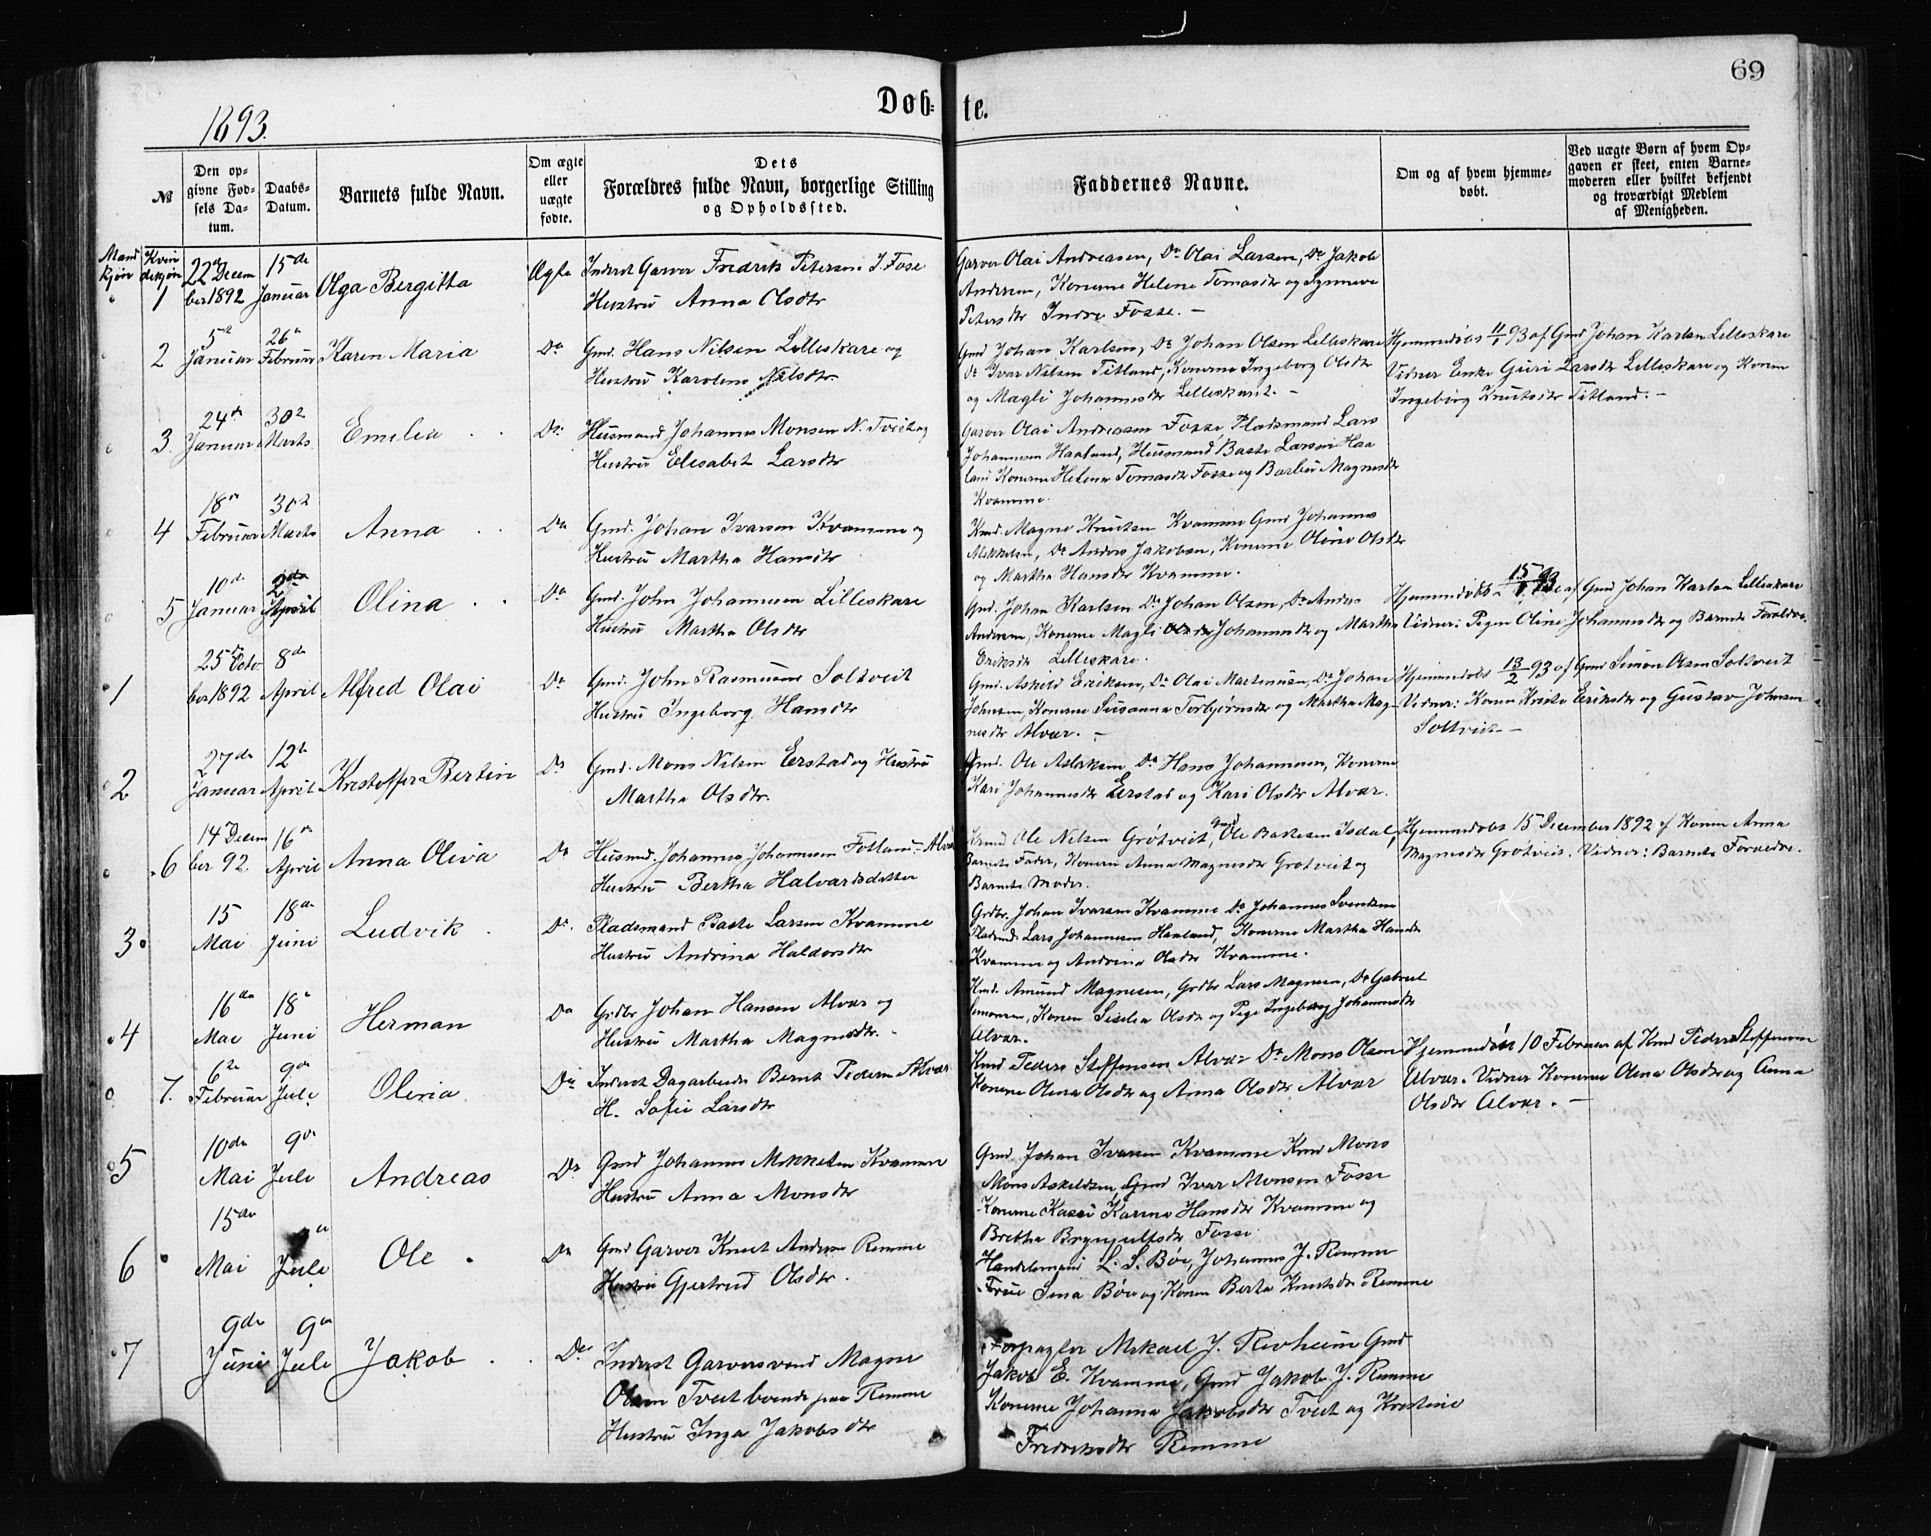 69
Døb= te.
1893.
№
Den op-
givne Fød-
sels Da-
tum.
Daabs-
Datum.
Barnets fulde Navn.
Om ægte
eller
uægte
fødte.
Dets
Forældres fulde Navn, borgerlige Stilling
og Opholdssted.
Faddernes Navne.
Om og af hvem hjemme-
døbt.
Ved uægte Børn af hvem Op-
gaven er skeet, enten Barne-
moderen eller hvilket bekjendt
og troværdigt Medlem
af Menigheden.
Mand Kvin
kjøn dekjøn
1 22de Decem
ber 1892 15de
Januar Olga Bergitta Ægte Inderst Garver Fredrik Petersen I. Fose
Hustru Anna Olsdtr
Garver Olai Andreasen, Do Olai Larsen, Do Jakob
Andersen, Konerne Helene Tomasdtr og Synneve
Petersdtr Indre Fosse. —
2 5te
Januar 26de
Februar Karen Maria Do Gmd. Hans Nilsen Lilleskare og
Hustru Karoline Nilsdtr.
Gmd Johan Karlsen, Do Johan Olsen Lilleskare
Do Ivar Nilsen Titland, Konerne Ingeborg Olsdtr
og Magli Johannesdtr Lilleskaret. —
Hjemmedøbt 11/1 93 af Gmd Johan Karlsen Lilleskare
Vidner Enke Guri Larsdtr Lilleskare og Konen
Ingeborg Knutsdtr Titland. —
3. 24de
Januar 30te
Marts Emilia Do. Husmand Johannes Monsen N. Tveit og
Hustru Elisabet Larsdtr
Garver Olai Andreasen Fosse Pladsmand Lars
Johannesen Haaland, Husmand Baste Larsen Haa
land Konerne Helene Tomasdtr Fosse og Barbru Magnesdtr
Kvamme.
4 18de
Februar 30te
Marts Anna Do Gmd. Johan Ivarsen Kvamme og
Hustru Martha Hansdtr
Kmd. Magne Knutsen Kvamme Gmd Johannes
Mikkelsen, Do Anders Jakobsen, Konerne Oline Olsdtr
og Martha Hansdtr Kvamme.
5 10de
Januar 2den
April Olina Do Gmd. John Johannesen Lilleskare
Hustru Martha Olsdtr
Gmd. Johan Karlsen Do Johan Olsen, Do Anders
Andersen, Konerne Magli Johannesdtr og Martha
Eriksdtr Lilleskare.
Hjemmedøbt 15/1 93 af Gmd Johan Karlsen Lilleskare
Vidner: Pigen Oline Johannesdtr og Barnets Forældre.
1 25de Octo
ber 1892 8de
April Alfred Olai Do Gmd. John Rasmusen Soltveit
Hustru Ingeborg Hansdtr
Gmd. Askeld Eriksen, Do Olai Martinusen, Do Johan
Johnsen, Konerne Susanna Torbjørnsdtr og Martha Mag-
nesdtr Alvær. —
Hjemmedøbt 13/2 93 af Gmd Simon Olsen Soltveit
Vidner: Konen Kristi Eriksdtr og Gustav Johnsen
Soltveit —
2 27de
Januar 12te
April Kristoffer Bertin Do Gmd. Mons Nilsen Eerstad og Hustru
Martha Olsdtr.
Gmd. Ole Aslaksen Do Hans Johannesen, Konerne
Kari Johannesdtr Eerstad og Kari Olsdtr Alvær.
6 14 Decem
ber 92. 16de
April Anna Oliva Do Husmd. Johannes Johannesen Fotland - Alvær
Hustru Bertha Halvardsdatter
Ole Nilsen Grøtveit, Gmd Ole Bastesen Isdal,
Barnets Fader, Konen Anna Magnesdtr Grøtveit og
Barnets Moder.
Hjemmedøbt 15 December 1892 af Konen Anna
Magnesdtr Grøtveit. Vidner: Barnets Forældre.
3 15
Mai 18de
Juni Ludvik Do. Pladsmand Baste Larsen Kvamme
Hustru Andrina Haldorsdtr
Grdbr. Johan Ivarsen Kvamme Do Johannes Svendsen
Pladsmd. Lars Johannesen Haaland, Konerne Martha Hansdtr
Kvamme og Andrina Olsdtr Kvamme.
4 16de
Mai 18
Juni Herman Do Grdbr Johan Hansen Alvær og
Hustru Martha Magnesdtr.
Kmd. Amund Magnesen, Grdbr Lars Magnesen, Do Gabriel
Simonsen, Konen Siselia Olsdtr og Pige Ingeborg Johannesdtr
Alvær.
7. 6te
Februar 9de
Juli Olina Do Inderst Dagarbeider Bernt Pedersen Alvær
H. Sofie Larsdtr
Kmd Peders Steffensen Alvær Do Mons Olsen
Konerne Olina Olsdtr og Anna Olsdtr Alvær
Hjemmedøbt 10 Februar af Kmd Peder Steffensen
Alvær. Vidner Konerne Olina Olsdtr og Anna
Olsdtr Alvær. —
5 10de
Mai 9de
Juli Andreas Do Gmd Johannes Mikkelsen Kvamme
Hustru Anna Monsdtr
Gmd Johan Ivarsen Kvamme Kmd Mons
Mons Askeldsen, Gmd Ivar Monsen Fosse
Konerne Karine Hansdtr Kvamme og
Brethe Brynjulfsdtr Fosse
6 15de
Mai
Juli Ole Do Gmd Garver Knut Andersen Remme
Hustru Gjertrud Olsdtr.
Handelsmand L. S. Bøe, Johannes J. Remme
Frue Sina Bøe og Konen Berta Knutsdtr Remme
7 9de
Juni 9de
Juli Jakob Do Inderst Garversvend Magne
Olsen Tveit boende paa Remme
Hustru Inga Jakobsdtr
Forpagter Mikael J. Rivheim Gmd
Jakob E. Kvamme, Gmd Jakob J. Remme
Konerne Johanna Jakobsdtr Tveit og Kristine
Fredriksdtr Remme